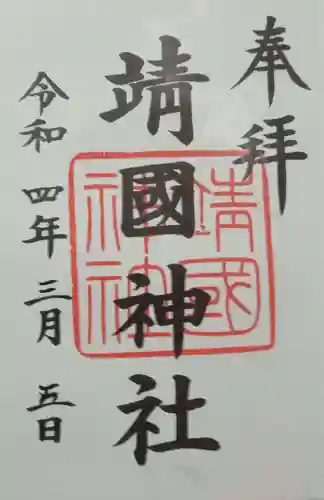 奉拝
靖國神社
靖國
神社
令和四年三月五日